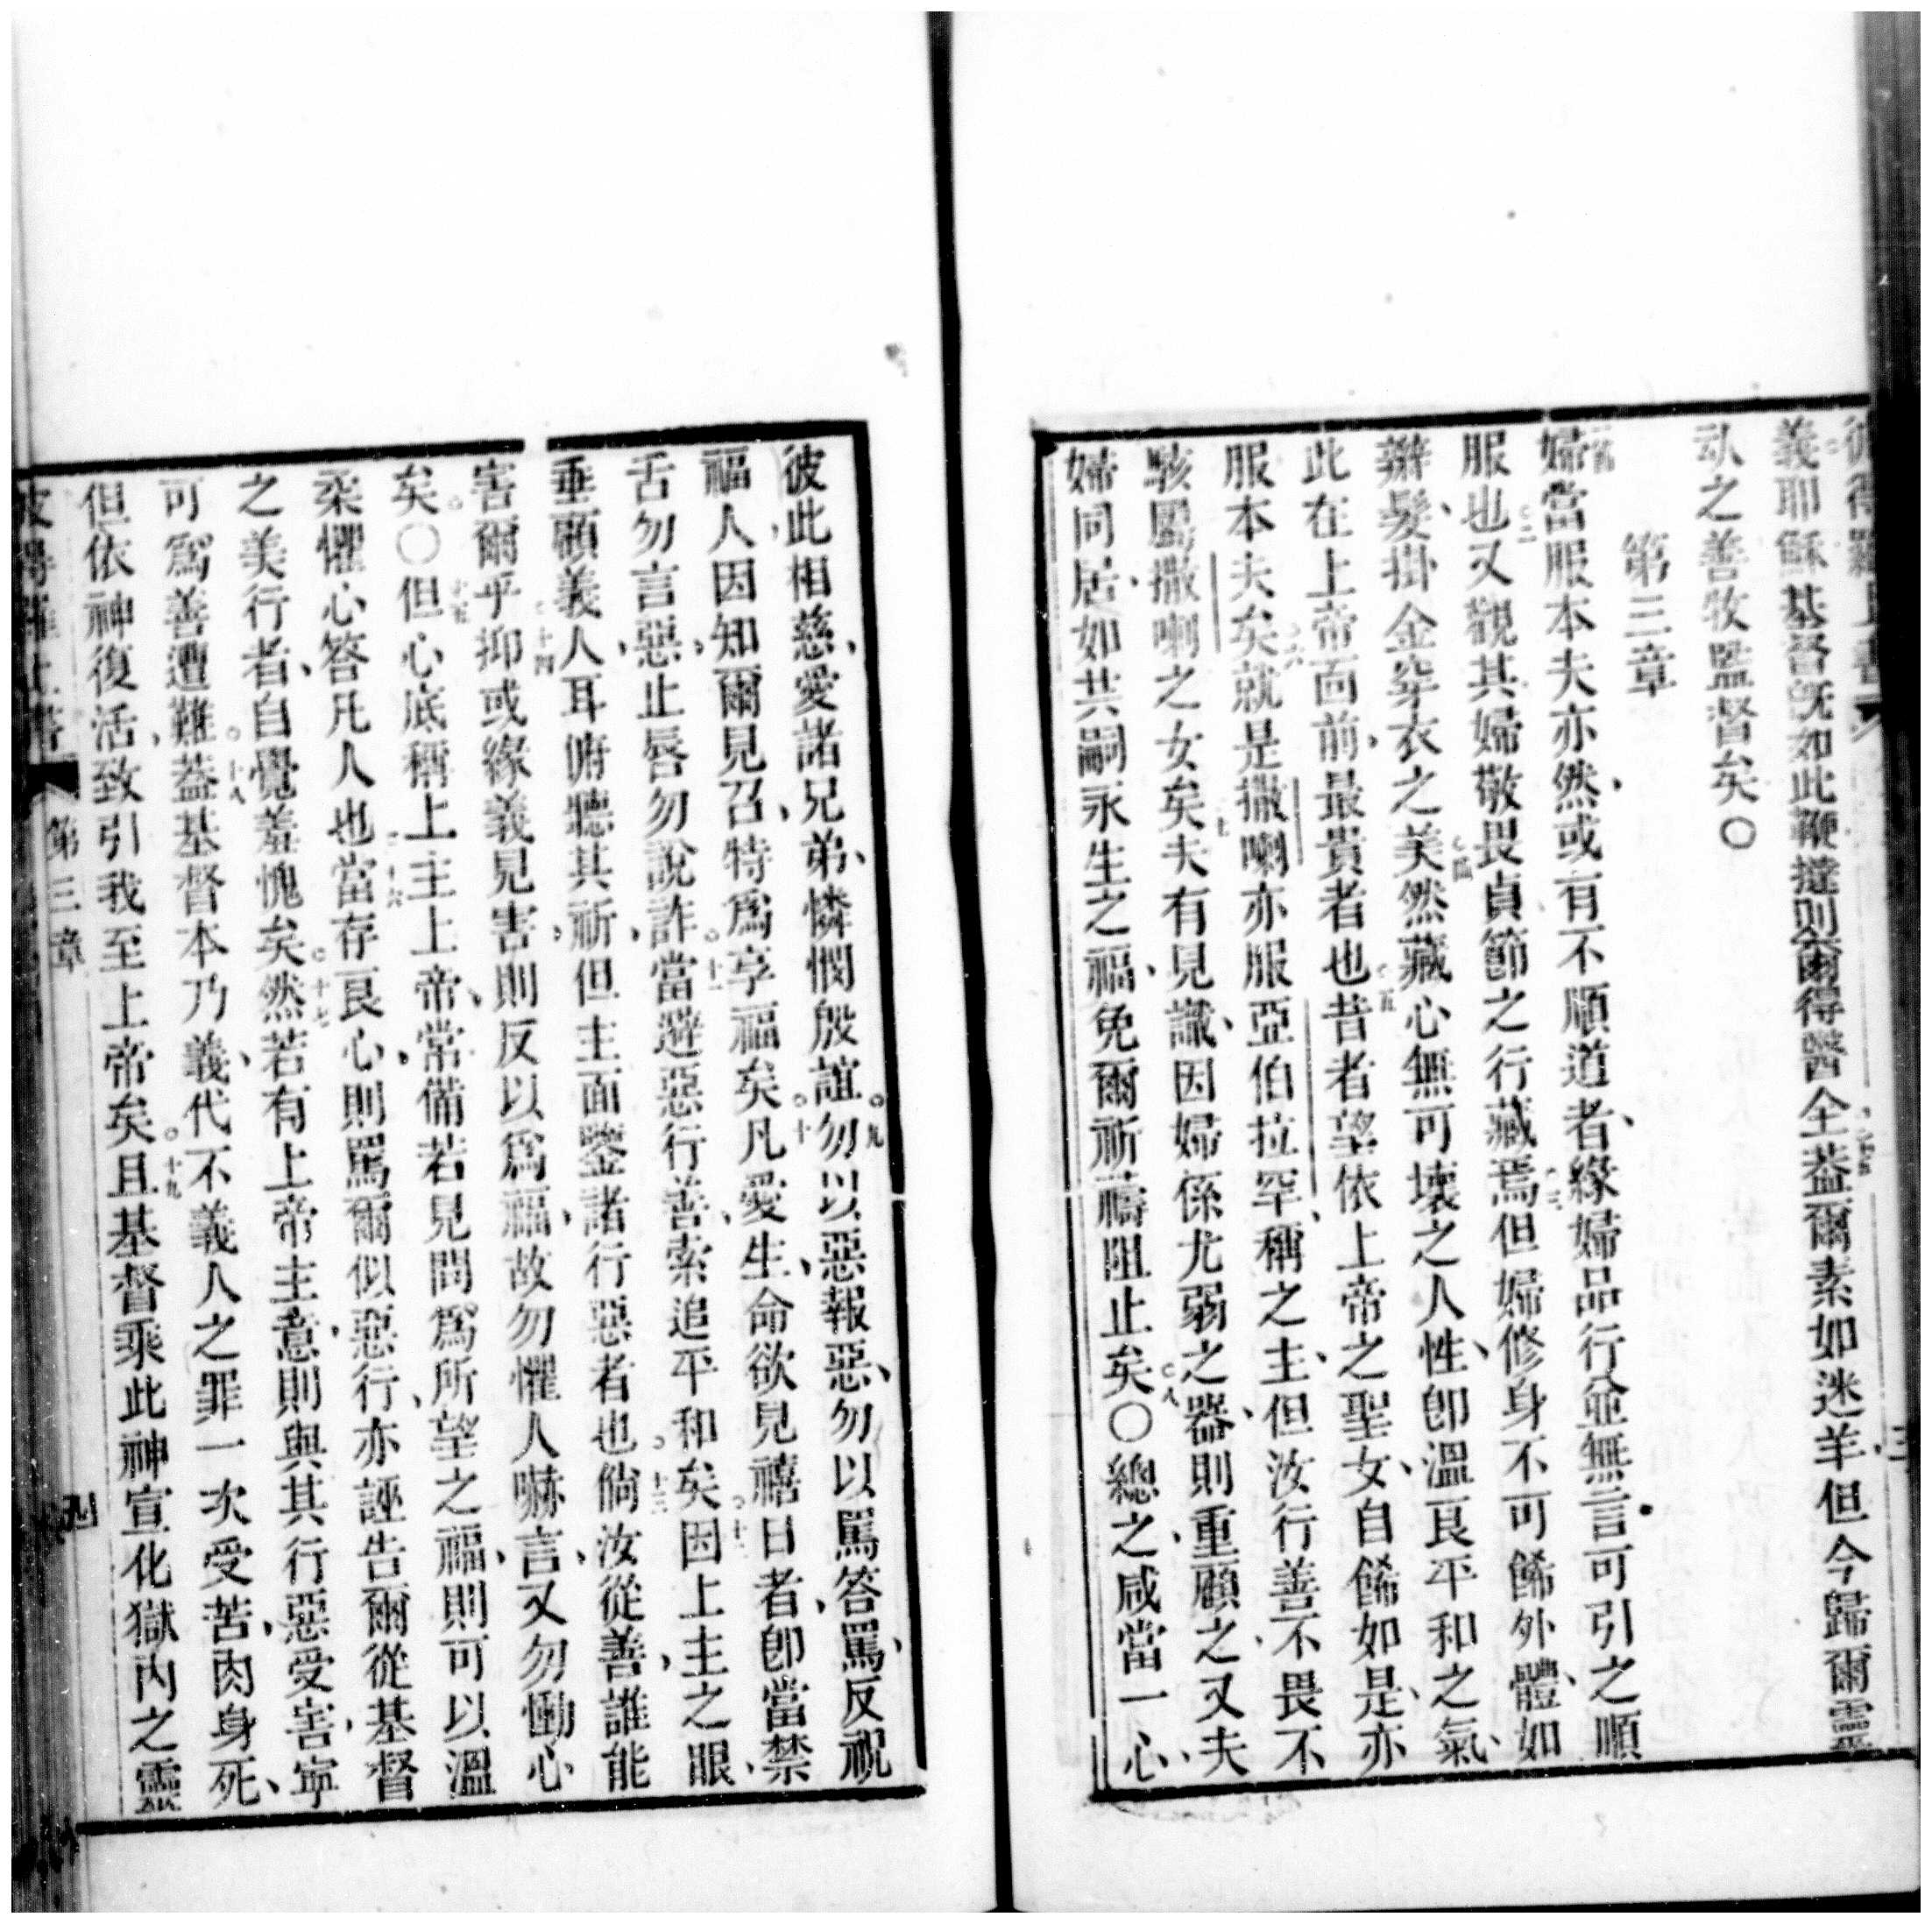 義耶穌基督旣如此鞭撻則爾得醫全葢爾素如迷羊但今歸爾靈
之善牧監督矣○
第三章
婦當服本夫亦然、或有不順道者、緣婦品行並無言可引之順
服也又觀其婦敬畏貞節之行藏焉但婦修身不可餙外體、如
辮髮、掛金穿衣之美然藏心無可壞之人性、卽溫良平和之氣、
此在上帝面前、最貴者也昔者望依上帝之聖女、自餙如是、亦
服本夫矣就是撒喇亦服亞伯拉罕、稱之主、但汝行善不畏不
駭屬撒喇之女矣夫有見識、因婦係尤弱之器、則重顧之、又夫
婦同居、如共嗣永生之福、免爾祈禱阻止矣○總之、咸當一心、
彼此相慈、愛諸兄弟、憐憫殷誼。勿以惡報惡、勿以罵答罵、反祝
福人、因知爾見召、特爲享福矣。凡愛生命、欲見禧日者、卽當禁
舌勿言惡、止唇勿說詐。當避惡行善、索追平和矣。因上主之眼、
垂顧義人、耳俯聽其祈、但主面鑒諸行惡者也。倘汝從善、誰能
害爾乎抑或緣義見害、則反以爲福、故勿懼人嚇言、又勿慟心
矣。○但心底稱上主上帝、常備若見問爲所望之福、則可以溫
柔懼心答凡人也當存良心、則罵爾似惡行、亦誣告爾從基督
之美行者、自覺羞愧矣。然若有上帝主意、則與其行惡受害、寧
可爲善遭難。葢基督本乃義、代不義人之罪一次受苦、肉身死、
但依神復活、致引我至上帝矣。且基督乘此神宣化獄內之靈
第三章